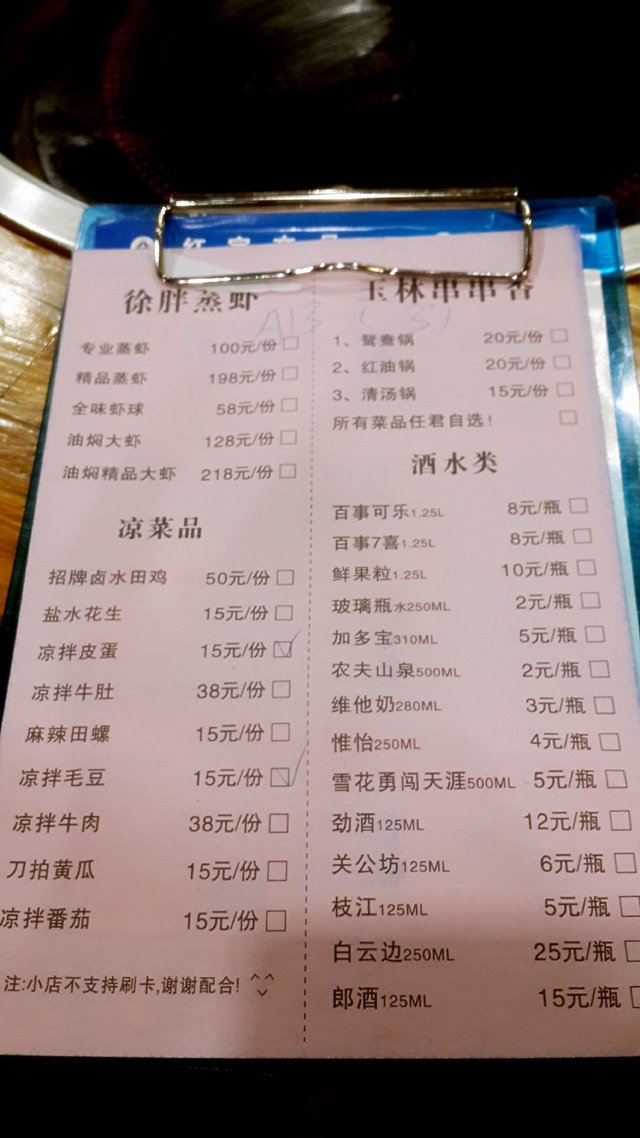 徐胖蒸虾
专业蒸虾 100元/份
精品蒸虾 198元/份
全味虾球 58元/份
油焖大虾 128元/份
油焖精品大虾 218元/份
凉菜品
招牌卤水田鸡 50元/份
盐水花生 15元/份
凉拌皮蛋 15元/份
凉拌牛肚 38元/份
麻辣田螺 15元/份
凉拌毛豆 15元/份
凉拌牛肉 38元/份
刀拍黄瓜 15元/份
凉拌番茄 15元/份
注:小店不支持刷卡,谢谢配合!
玉林串串香
1、鸳鸯锅 20元/份
2、红油锅 20元/份
3、清汤锅 15元/份
所有菜品任君自选!
酒水类
百事可乐1.25L 8元/瓶
百事7喜1.25L 8元/瓶
鲜果粒1.25L 10元/瓶
玻璃瓶水250ML 2元/瓶
加多宝310ML 5元/瓶
农夫山泉500ML 2元/瓶
维他奶280ML 3元/瓶
惟怡250ML 4元/瓶
雪花勇闯天涯500ML 5元/瓶
劲酒125ML 12元/瓶
关公坊125ML 6元/瓶
枝江125ML 5元/瓶
白云边250ML 25元/瓶
郎酒125ML 15元/瓶